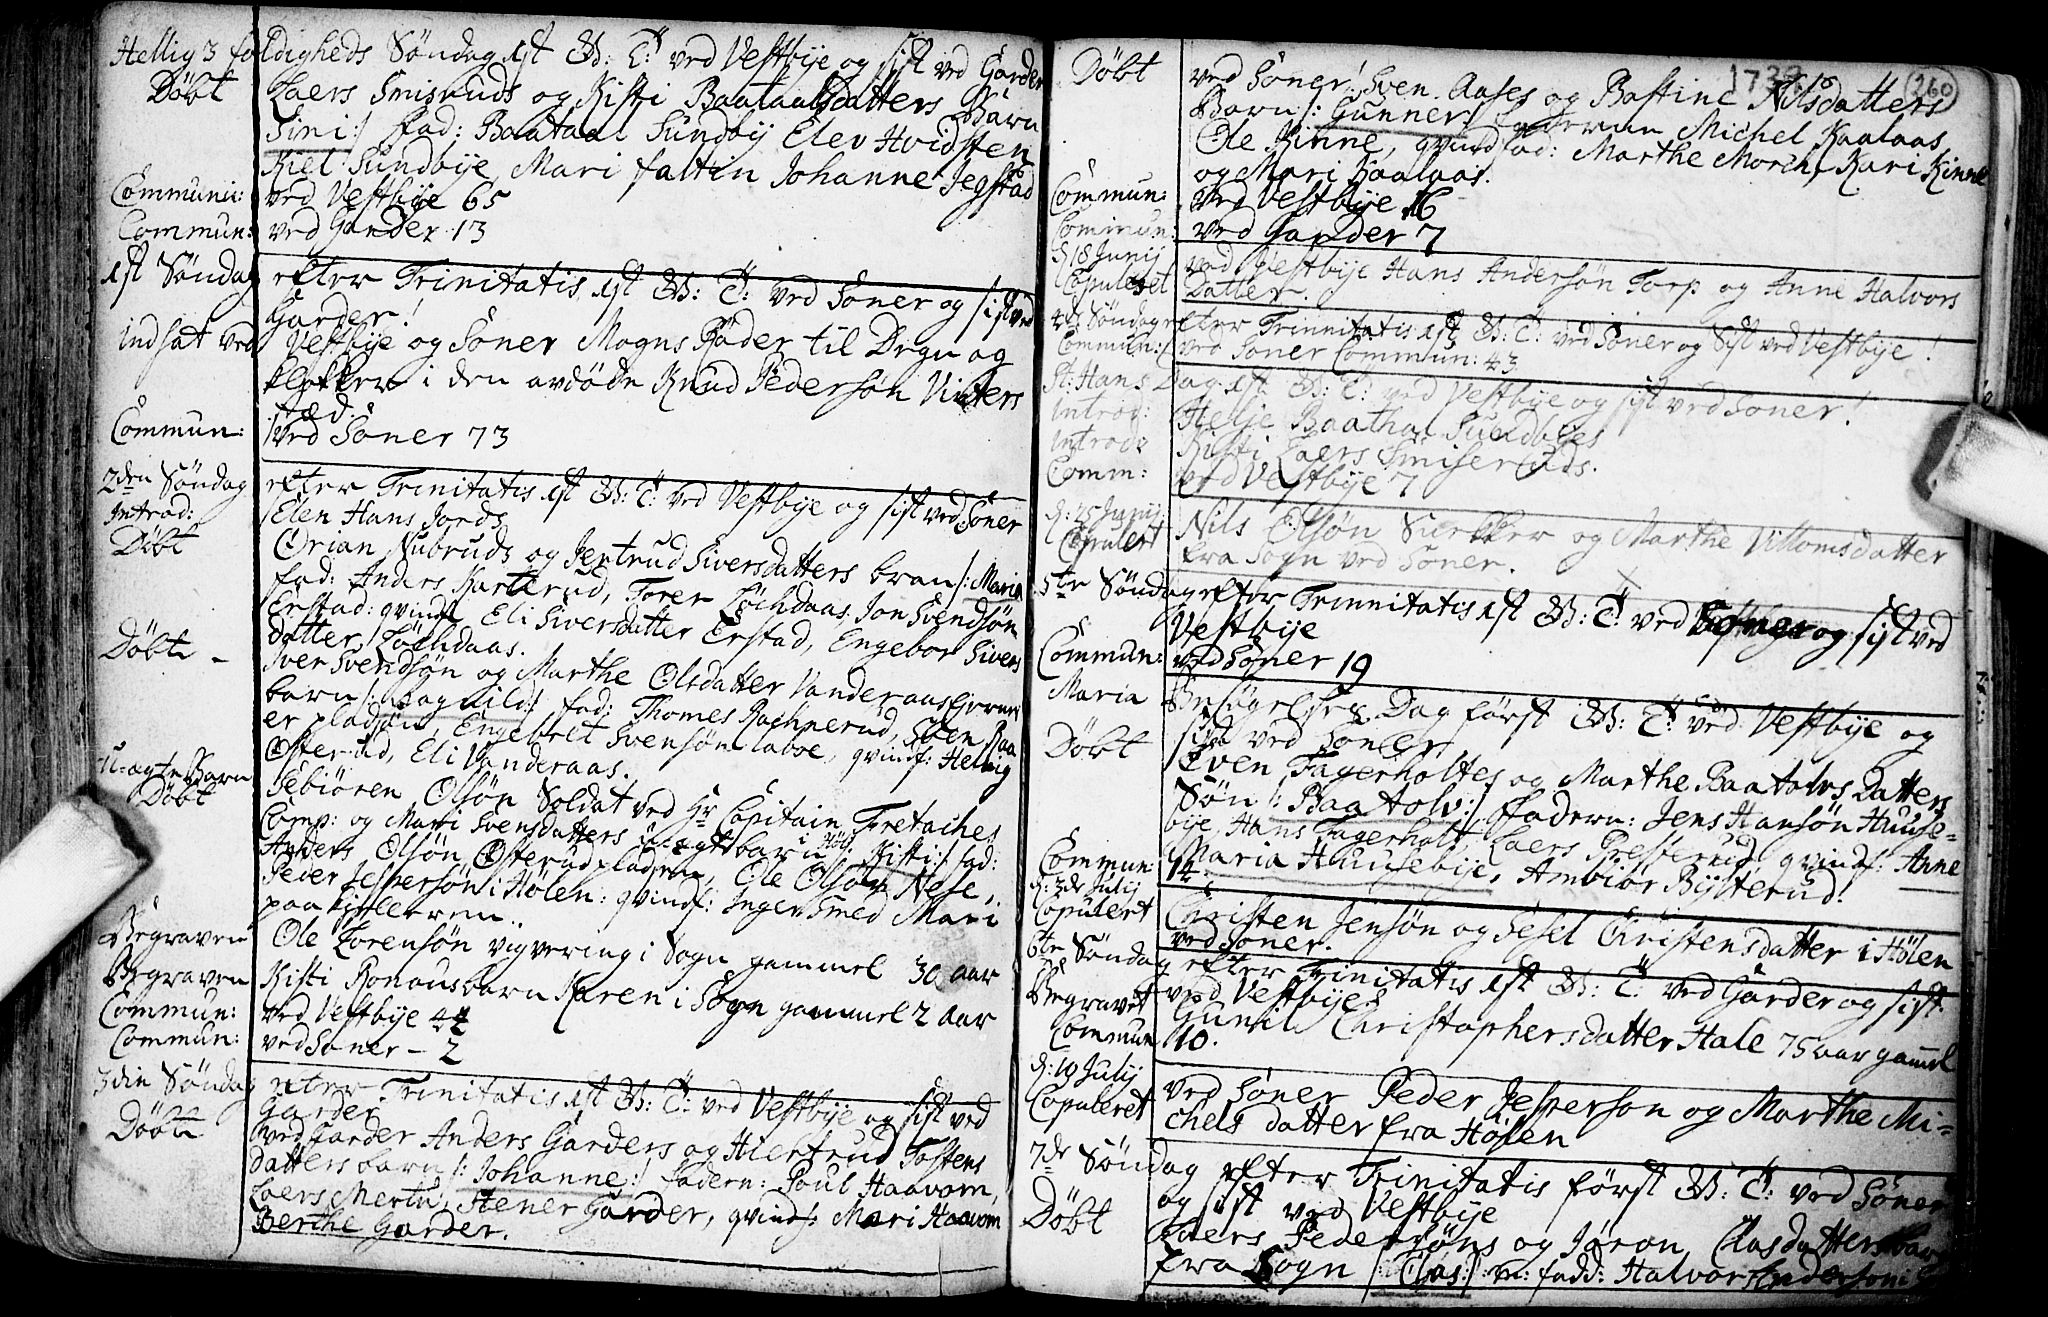 Hellig 3 foldigheds Söndag 1st B: T: ved Vestbÿe og sist ved Garder
Döbt Laers Smisruds og Kisti Baataalsdatters Barn
Sini :/ Fad: Baataal Sundbÿ Elev Hvidsten
Kiel Sundbÿe, Mari falten Johanne Jegstad
Communi: ved Vestbÿe 65
Commun: ved Garder 13
1st Söndag efter Trinitatis 1st B: T: ved Soner og sist ved
Garder!
indsat ved Vestbÿe og Soner Mogns Röder til Degn og
klokker i den avdöde Knud Pedersön Vinters
stæd.
Commun: ved Soner 73
2den Söndag efter Trinitatis 1st B: T: ved Vestbÿe og sist ved Soner
Introd: Elen Hans Jords
Döbt Örian Nubruds og Jertrud Siversdatters bran /: Maria
fad: Anders Karlerud, Torer Löchdaas, Jon Svendsön
Erstad: qvindf: Eli Siversdatter Erstad, Engebor Sivers
datter Löchdaas.
Döbt - Iver Svendsön og Marthe Olsdatter Vanderaas
barn /: Dagnild :/ fad: Thomes Rachnerud, Sven Raa
er pladsen, Engebret Svensön laboe, qvindf: Helvig
Österud, Eli Vanderaas.
U-ægte Barn Tebiören Olsön Soldat ved Hr Capitain Tretaches
Döbt Comp: og Mari Svensdatters uægt barn i Höl: Kisti :/ fad:
Anders Olsön Österud pladsen, Ole Olsön Nese,
Peder Jespersön i Hölen: qvindf: Inger Smed Mari
paa Kjelleren.
Begraven Ole Lorensön vigvering i Sogn gammel 30 aar
Begraven Kisti Ronausbarn Karen i Sogn gammel 2 aar
Commun: ved Vestbÿe 44
Commun: ved Soner - 2
3din Söndag efter Trinitatis 1st B: T: ved Vestbÿe og sist ved
Garder
Döbt ved Garder Anders Garders og Hiertrud Tostens
datters barn /: Johanne :/ fadern: Poul Haavom,
Laers Mertu, Stener Garder, qvindf: Mari Haavom
Berthe Garder.
1739. 260
Döbt ved Soner! Sven Aases og Bastine Nilsdatters
Barn /: Gunner :/ Fadderne Michel Kaalaas
Ole Kinne, qvindfad: Marthe Morch, Kari Kinne
og Mari Kaalaas.
Commun: Ved Vestbÿe 16
Commun: ved Garder 7
d 18 Junij ved Vestbÿe Hans Andersön Torp og Anne Halvors
Copuleret Datter.
4de Söndag efter Trinnitatis 1st B: T: ved Soner og Sist ved Vestbÿe!
Commun: ved Soner Commun: 43
St: Hans Dag 1st B: T: ved Vestbÿe og sist ved Soner!
Introd: Helje Baathol Sundbÿes
Introd: Kisti Laers Smiseruds.
Comm: ved Vestbÿe 7
d: 25 Junij: Nils Olsön Suekker og Marthe Villomsdatter
Copulert fra Sogn ved Soner.
5te Söndag efter Trinnitatis 1st B: T: ved Soner og sist ved
Vestbÿe
Commun: ved Soner 19
Maria Besögelses Dag först B: T: ved Vestbÿe og
sist ved Soner
Döbt Even Fagerholtes og Marthe Baatolvs Datters
Sön /: Baatolv :/ Fadern: Jens Hansön Huuse-
bÿe, Hans Fagerholt, Laers Presterud, qvindf: Anne
Maria Huusebÿe, Ambiör Bÿsterud!
Commun: 14.
d: 3de Julij Christen Jensön og Sesel Christensdatter i Hölen
Copulert ved Soner.
6te Söndag efter Trinitatis 1st B: T: ved Garder og sist
ved Vestbÿe
Begravet Gunil Christophersdatter Hale 75 aar gammel
Commun 10.
d: 10 Julij ved Söner Peder Jesperson og Marthe Mi-
Copuleret chels datter fra Hölen
7de Söndag efter Trinitatis först B: T: ved Söner
og sist ved Vestbÿe
Döbt Laers Pedersöns og Jöron Clasdatters bar
fra Sogn /: Clas :/ m: fadd: Halvor Andersön i